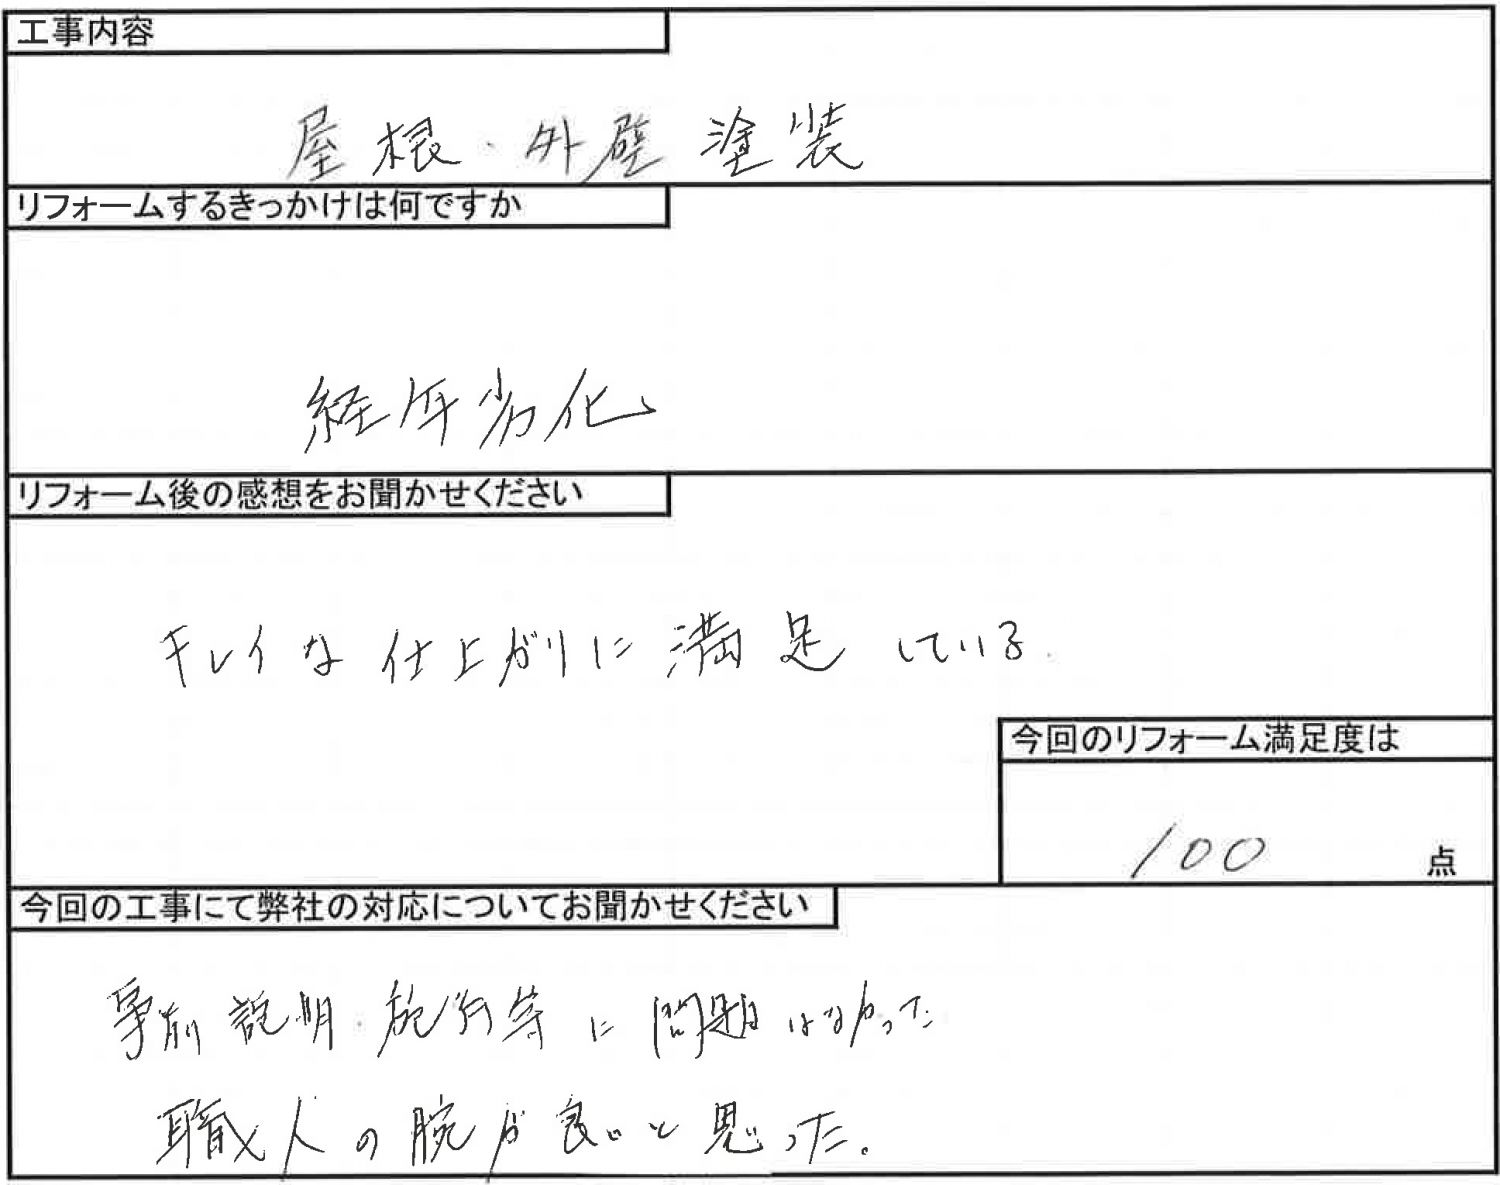 工事内容
屋根・外壁塗装
リフォームするきっかけは何ですか
経年劣化
リフォーム後の感想をお聞かせください
キレイな仕上がりに満足している.
今回のリフォーム満足度は
100 点
今回の工事にて弊社の対応についてお聞かせください
事前説明・施行等に問題はなかった
職人の腕が良いと思った。